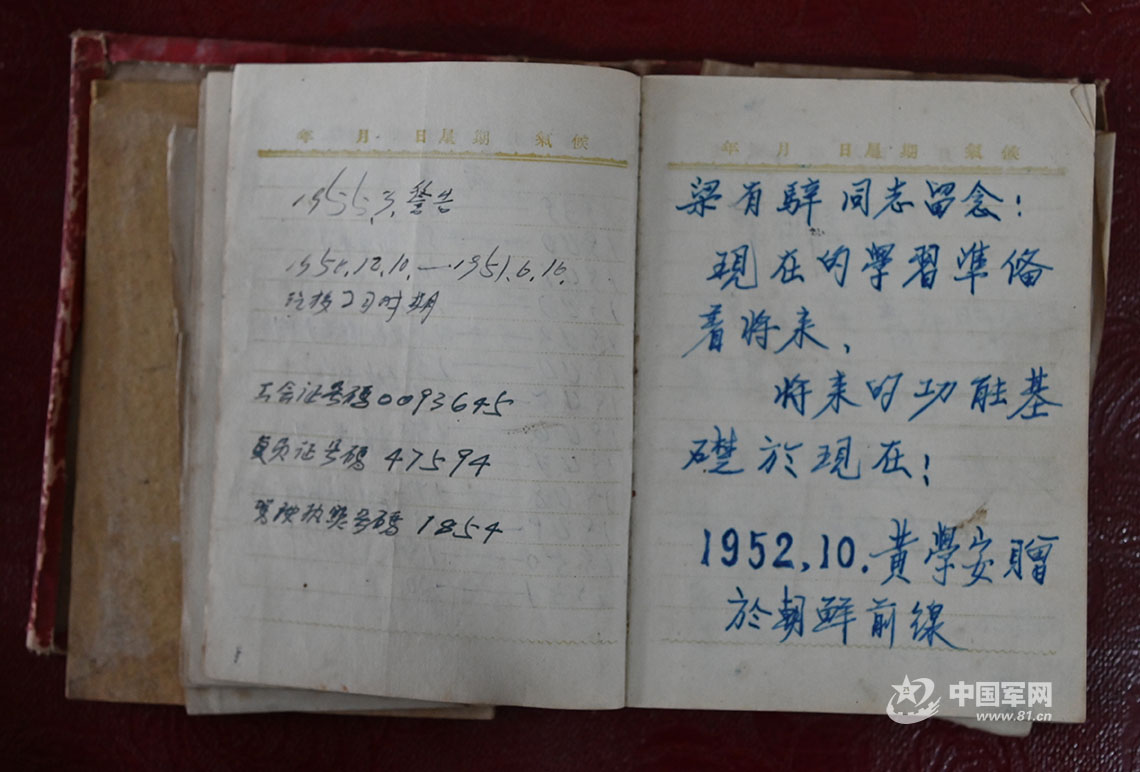 年 月 日星期 氣候
1955.3.警告
1950.12.10.—1951.6.16.
时期
工会证号码0093645
员证号码 47594
驾驶执照号码 1854
年 月 日星期 氣候
梁有騂同志留念:
現在的學習準备
着将来、
将来的功能基
礎於現在!
1952.10.黄學安贈
於朝鮮前線
中国军网
www.81.cn